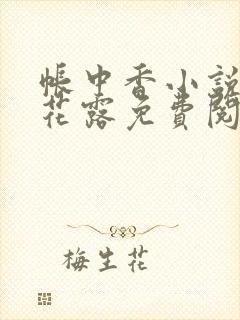 帳中香小說
花露免費閱
梅生花